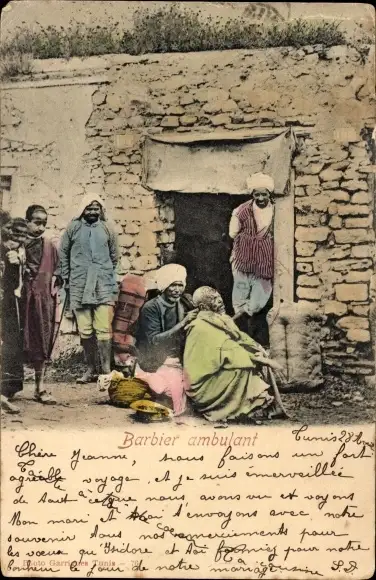 Barbier ambulant
Tunis 28
Chère Jeanne, nous faisons un fort
agréable voyage, et je suis émerveillée
de tout ce que nous avons vu et voyons
Mon mari et moi t'envoyons avec notre
souvenir tous nos remerciements pour
les voeux qu'Isidore et toi formiez pour notre
bonheur le jour de notre mariage
Photo Garrigues Tunis